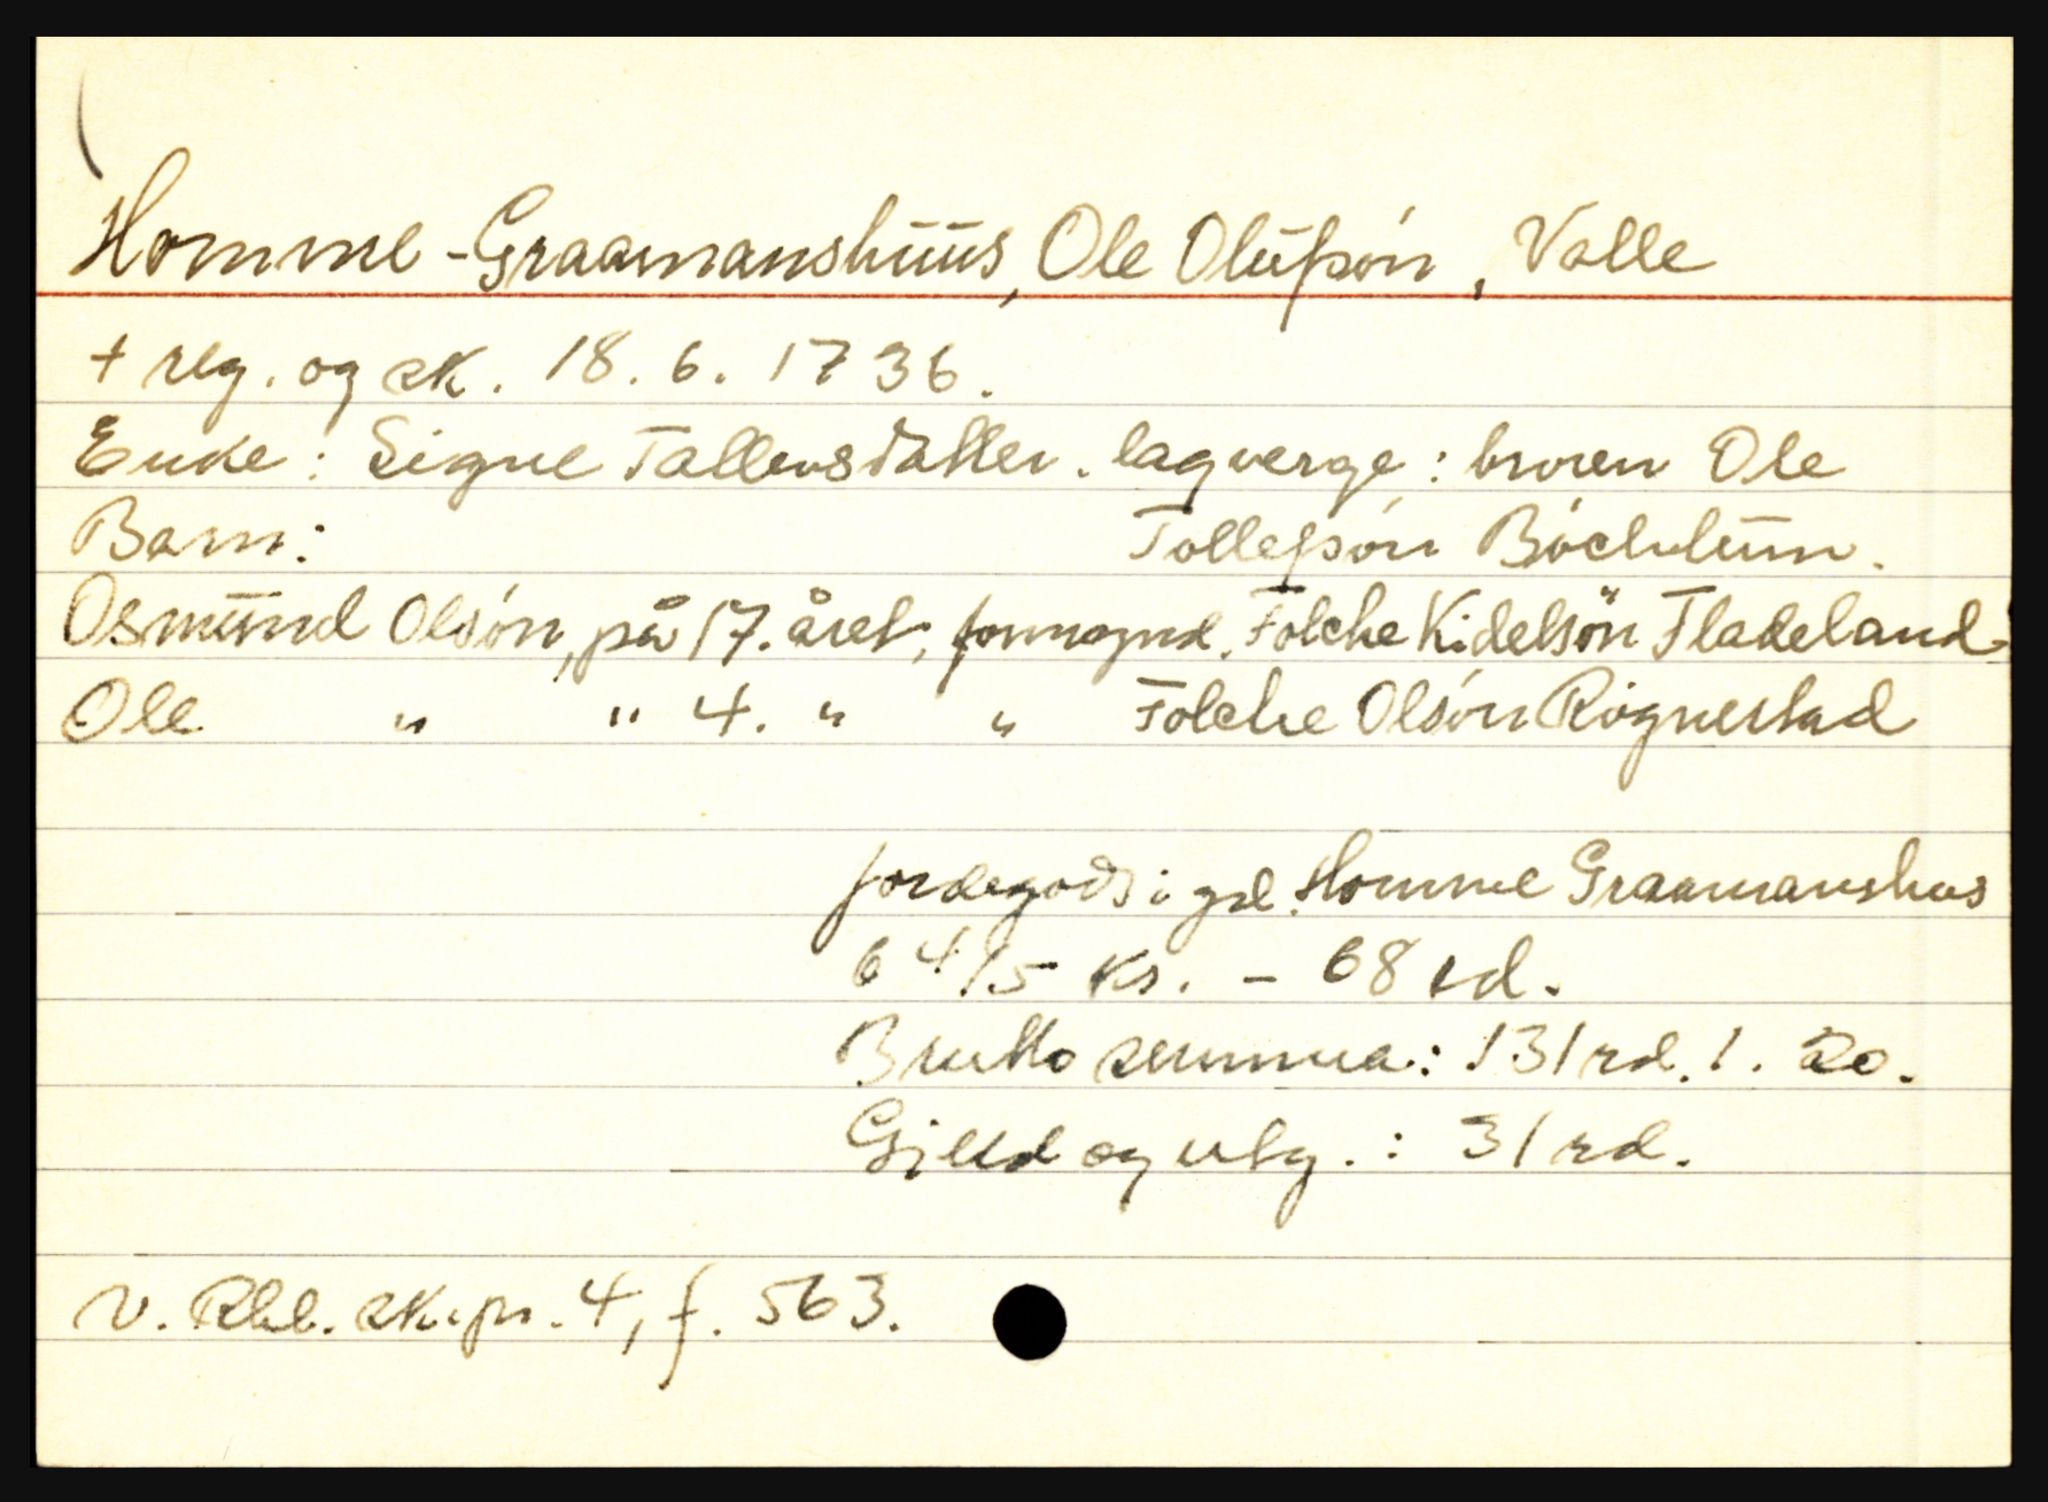 Homme-Graamanshūūs, Ole Olūfsón, Valle
+ reg. og sk. 18. 6. 1736.
Enke: Signe Tallevsdatter. lagverge: broren Ole
Barn: Tollefsón Bóchtūn.
Osmūnd Olsón, på 17. året, formynd. Folche Kidelsön Fladeland
Ole " " 4. " " Folche Olsón Rógnestad
Jordegods i gd. Homme Graamanshus
6 4/5 ks. - 68 rd.
Brutto summa: 131 rd. 1. 20.
Gjeld og utg.: 31 rd.
V. Rbl. sk.pr. 4, f. 563.